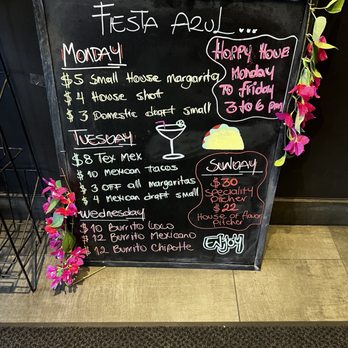 FIESTA AZUL...
MONDAY
$5 Small House margarita
$4 House shot
$3 Domestic draft small
Happy Hour
Monday
To Friday
3 to 6 pm
TUESDAY
$8 Tex Mex
$10 Mexican tacos
$3 OFF all margaritas
$4 Mexican draft small
SUNDAY
$30
Speciality
Pitcher
$22
House of flavor
Pitcher
Wednesday
$10 Burrito Loco
$12 Burrito Mexicano
$12 Burrito Chipotle
Enjoy